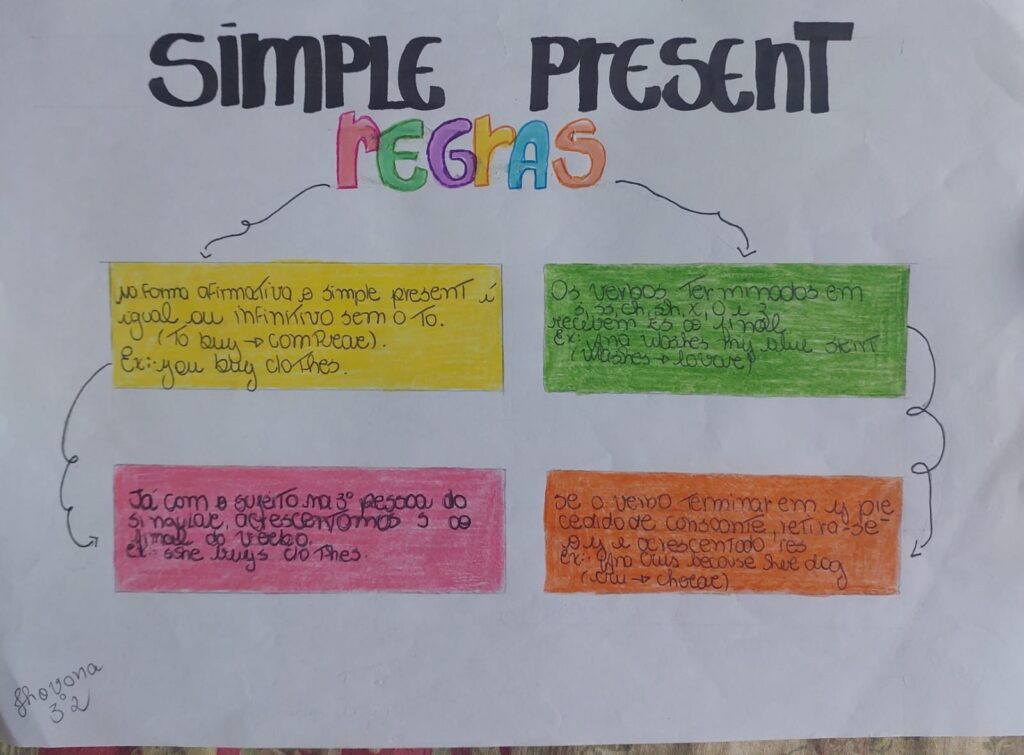 SIMPLE PRESENT
REGRAS
na forma afirmativa o simple present é
igual ou infinitivo sem o to.
(To buy → comprar).
Ex: you buy clothes.
Os verbos terminados em
s, ss, ch, sh, x, o e z
recebem es ao final
Ex: Ana washes thy blue
(washes → lavar)
Já com o sujeito na 3º pessoa do
singular, acrescentamos s ao
final do verbo.
Ex: she buys clothes.
se o verbo terminar em y pre
cedido de consoante, retira-se
o y e acrescentado ies
Ex: Ana cries because dog
(cry → chorar)
3º 2